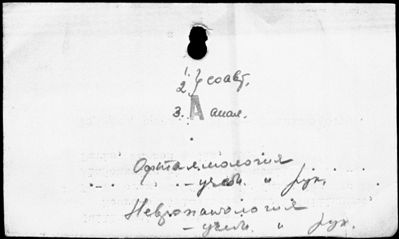 1. } соавт.
2.
3. А анал.
Офталмология
- учеб. и рук.
Невропатология
- учеб. и рук.